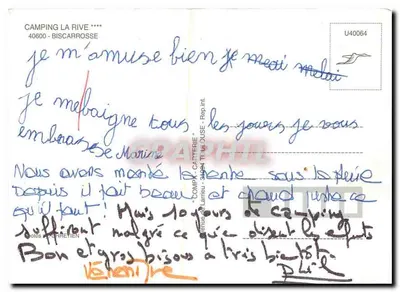 CAMPING LA RIVE ****
40600 - BISCARROSSE
U40064
je m'amuse bien je
je me baigne tous les jours je vous
embrasse Marine
Nous avons monté la tente sous la pluie
depuis il fait beau et chaud juste ce
qu'il faut! Mais 10 jours de camping
suffiront malgré ce qu'en disent les enfants
Bon et gros bisous à très bientôt
Phil